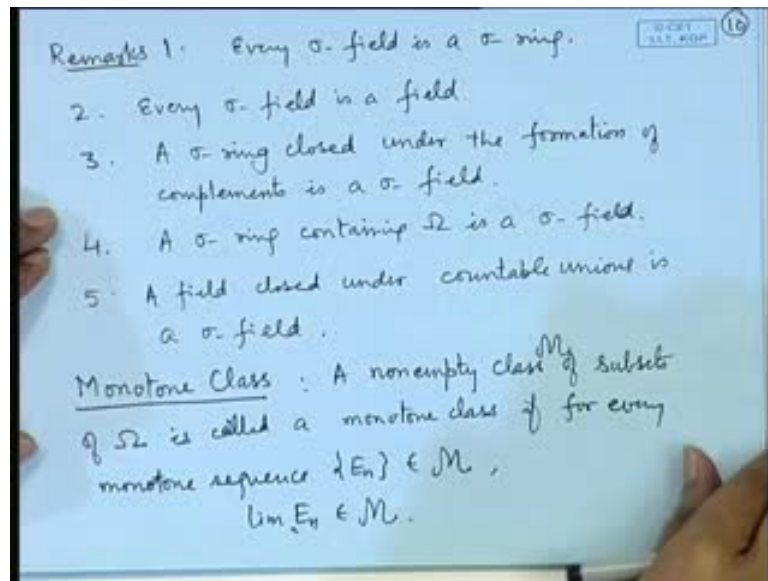 Remarks 1. Every σ-field is a σ-ring.
© CET
I.I.T. KGP
10
2. Every σ-field is a field.
3. A σ-ring closed under the formation of
complements is a σ-field.
4. A σ-ring containing Ω is a σ-field.
5. A field closed under countable unions is
a σ-field.
Monotone Class : A nonempty class ℳ of subsets
of Ω is called a monotone class if for every
monotone sequence {En} ∈ ℳ,
lim En ∈ ℳ.